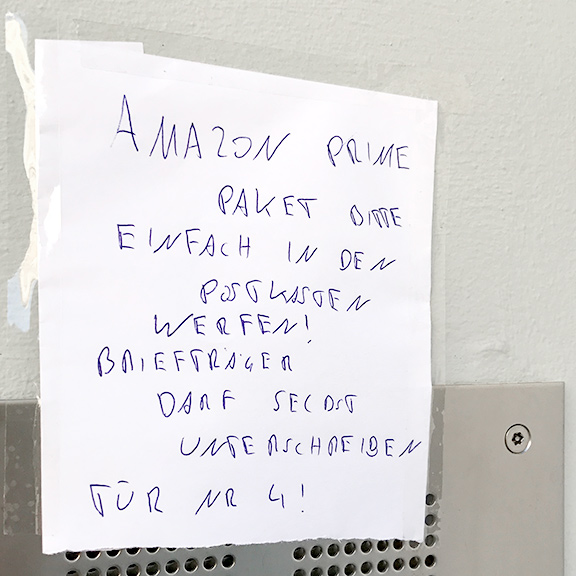 AMAZON PRIME
PAKET BITTE
EINFACH IN DEN
POSTKASTEN
WERFEN!
BRIEFTRÄGER
DARF SELBST
UNTERSCHREIBEN
TÜR NR 4!